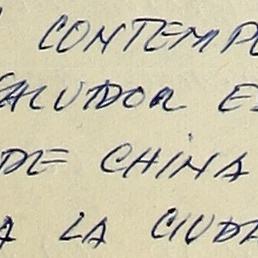 CONTEMPO
SALVADOR E
DE CHINA
A LA CIUDA